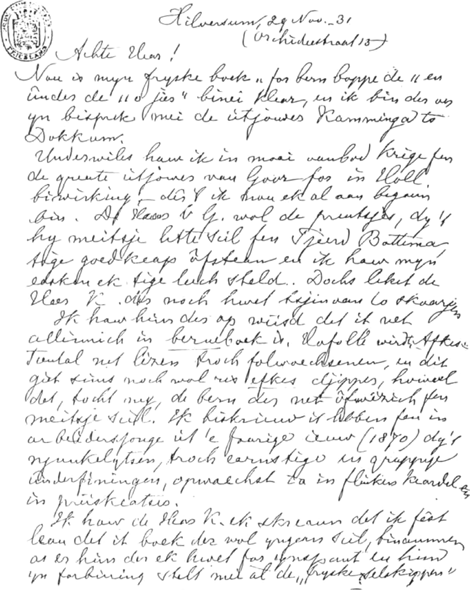 Hilversum, 29 Nov. -31
(Orchideestraat 13)
Achte Hear!
Nou is myn fryske boek "foar bern boppe de " en
ûnder de "" jier" binei klear, en ik bin der oer
yn bisprek mei de útjouwer Kamminga to
Dokkum.
Underwiles haw ik in moai oanbod krige fen
de greate útjouwer van Goor for in Holl.
biwirking, dêr't ik nou ek al oan bigoun
bin. De Hear v. G. wol de prentsjes, dy't
hy meitsje litte sil fen Tjeerd Bottema
tige goedkeap ôfstean en ik haw myn
easken ek tige leech steld. Dochs liket de
Hear K. der noch hwet tsjinoan to skoarjen
Ik haw him der op wiisd det it net
allinnich in berneboek is. Hafolle wirdt Afkes
Tiental net lêzen troch folwoeksenen, en dit
giet sims noch wol ris efkes djipper, hoewol
det, tocht my, de bern der net ôfwêzich fen
meitsje sil. Ik biskriuw it libben fen in
arbeidersjonge út 'e foarige ieuw (1870) dy't
troch earnstige en grappige
ûnderfiningen, opwaechst ta in flinke keardel en
in
Ik haw de Hear K. ek skreaun det ik fêst
leau det it boek der wol yngean sil, binammen
as er him der ek hwet foar ynspant en him
yn forbining stelt mei al de "fryske selskippen"